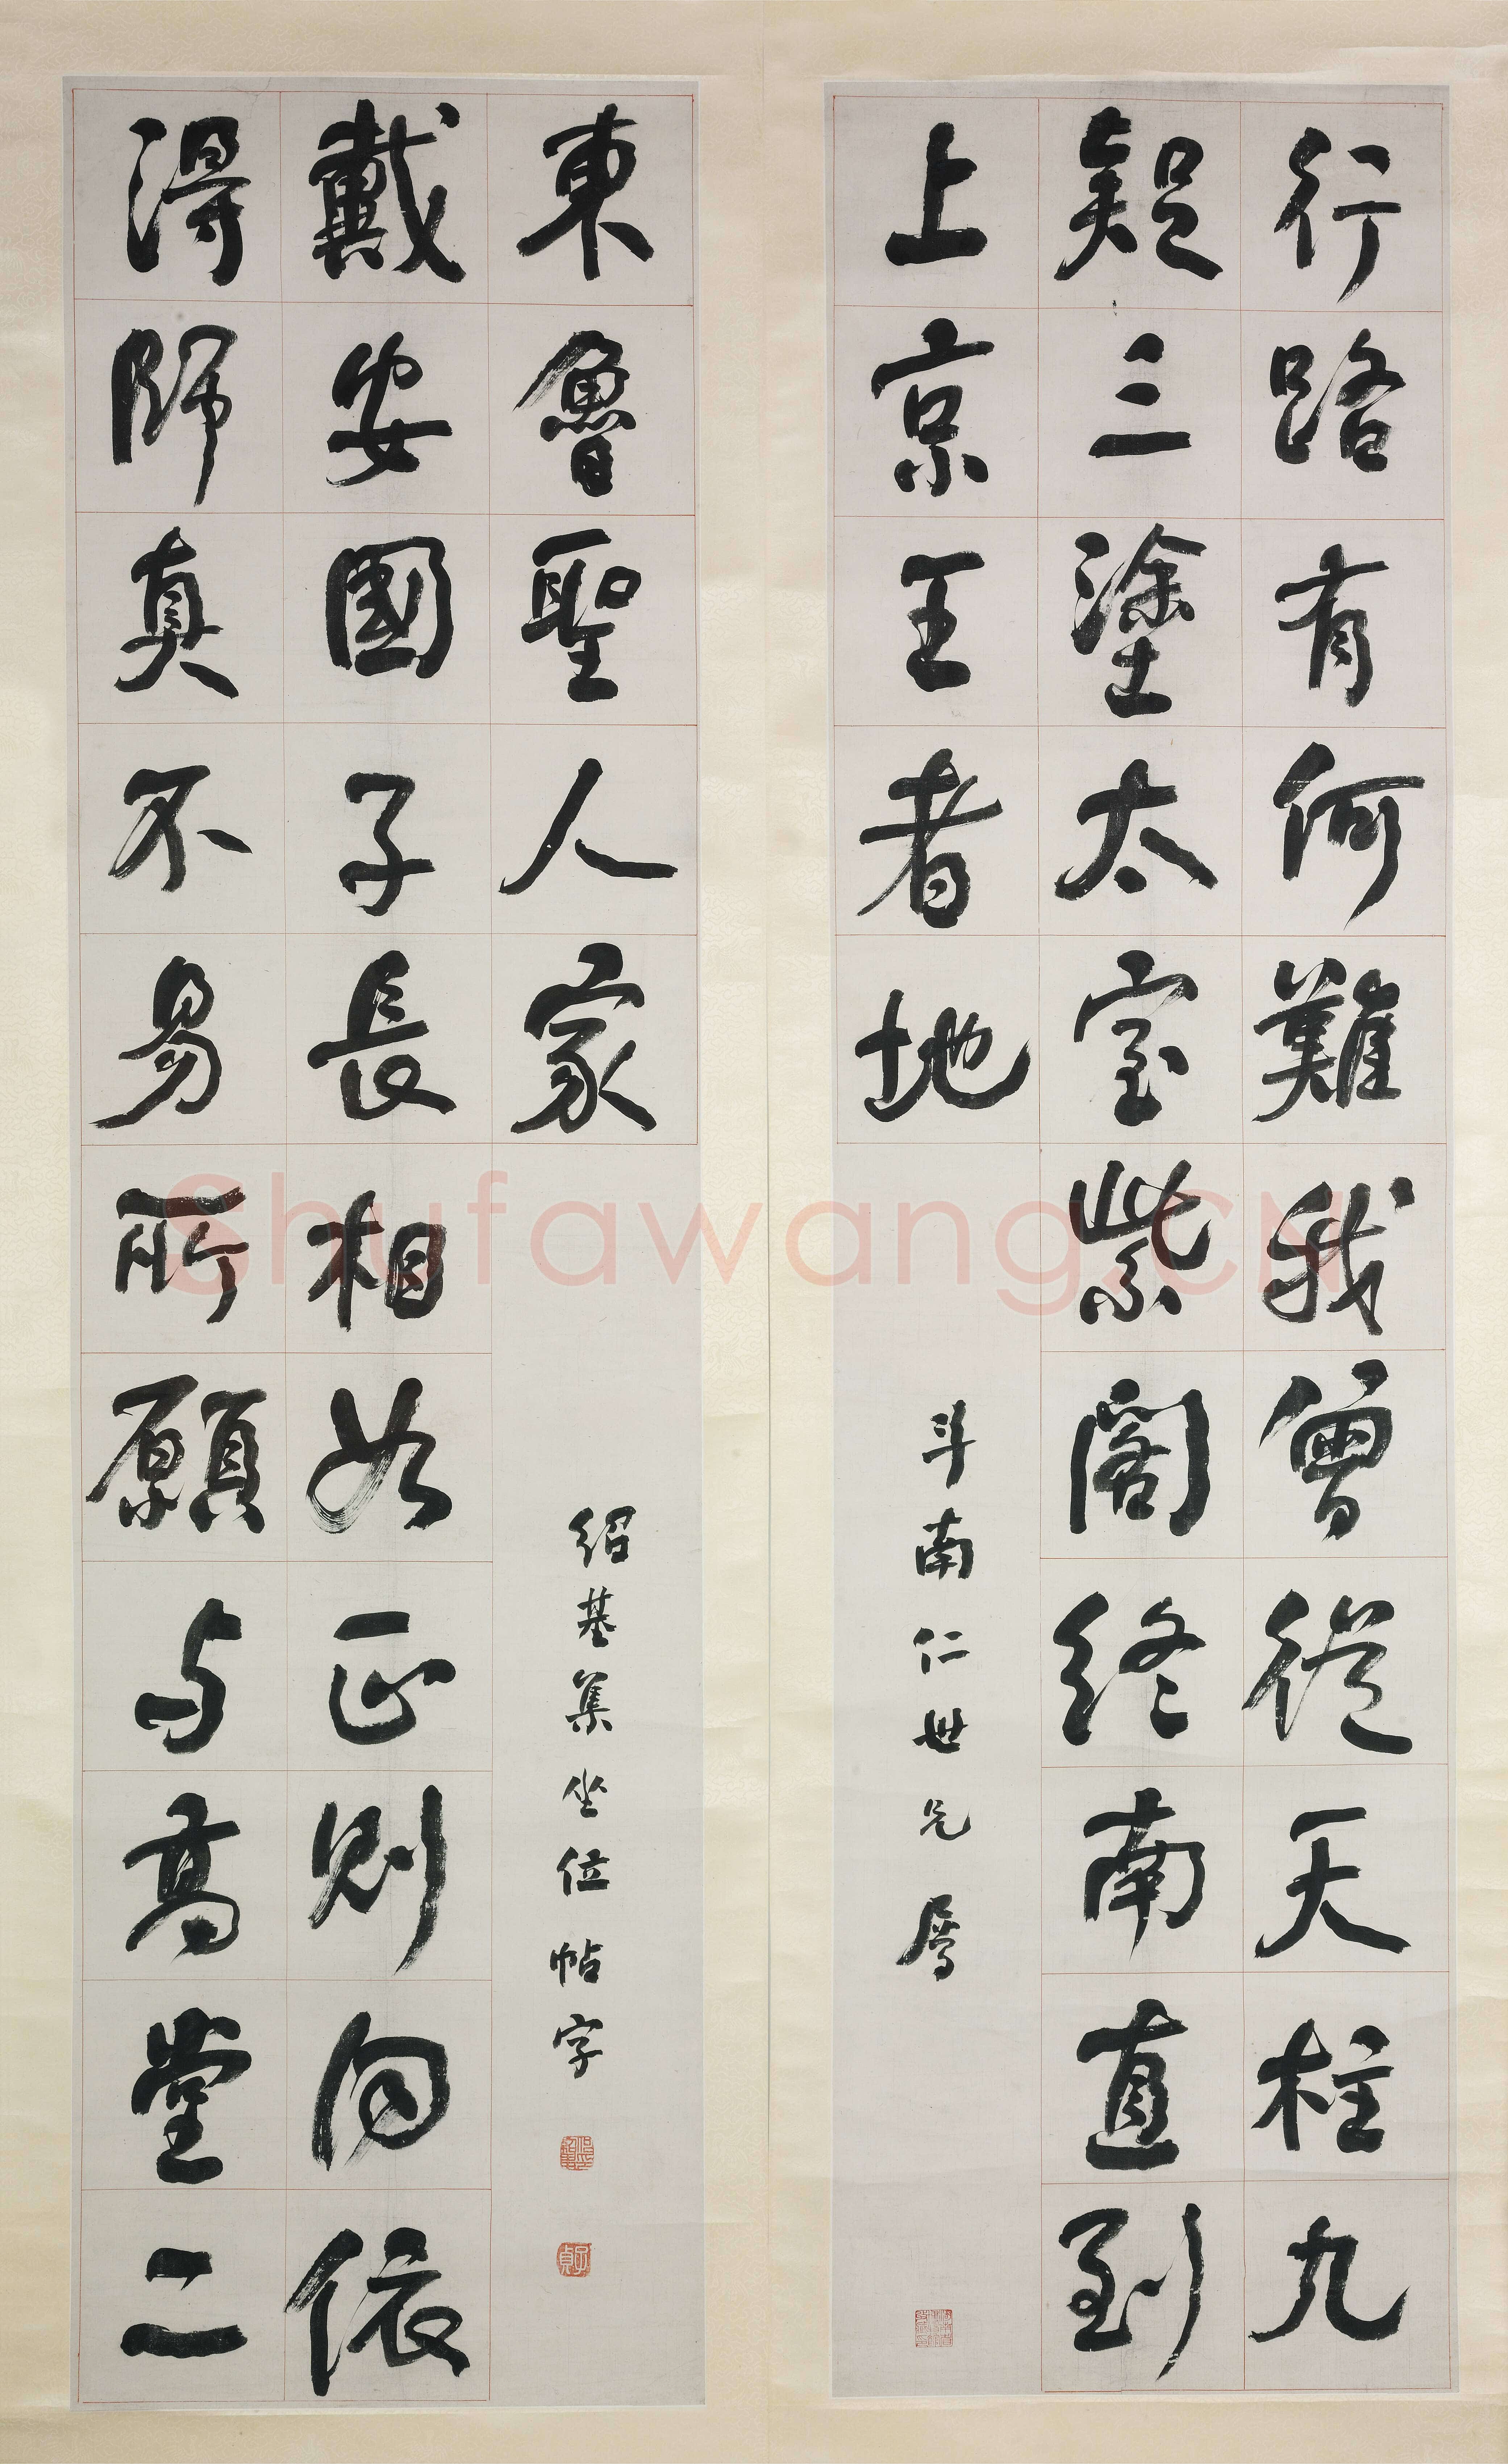 行路有何難我曾從天柱九
疑三塗太室紫閣終南直到
上京王者地
斗南仁世兄屬
得師真不易所願与高堂二
戴安國子長相如正則同依
東魯聖人家
紹基集坐位帖字
子貞
Shufawang.CN